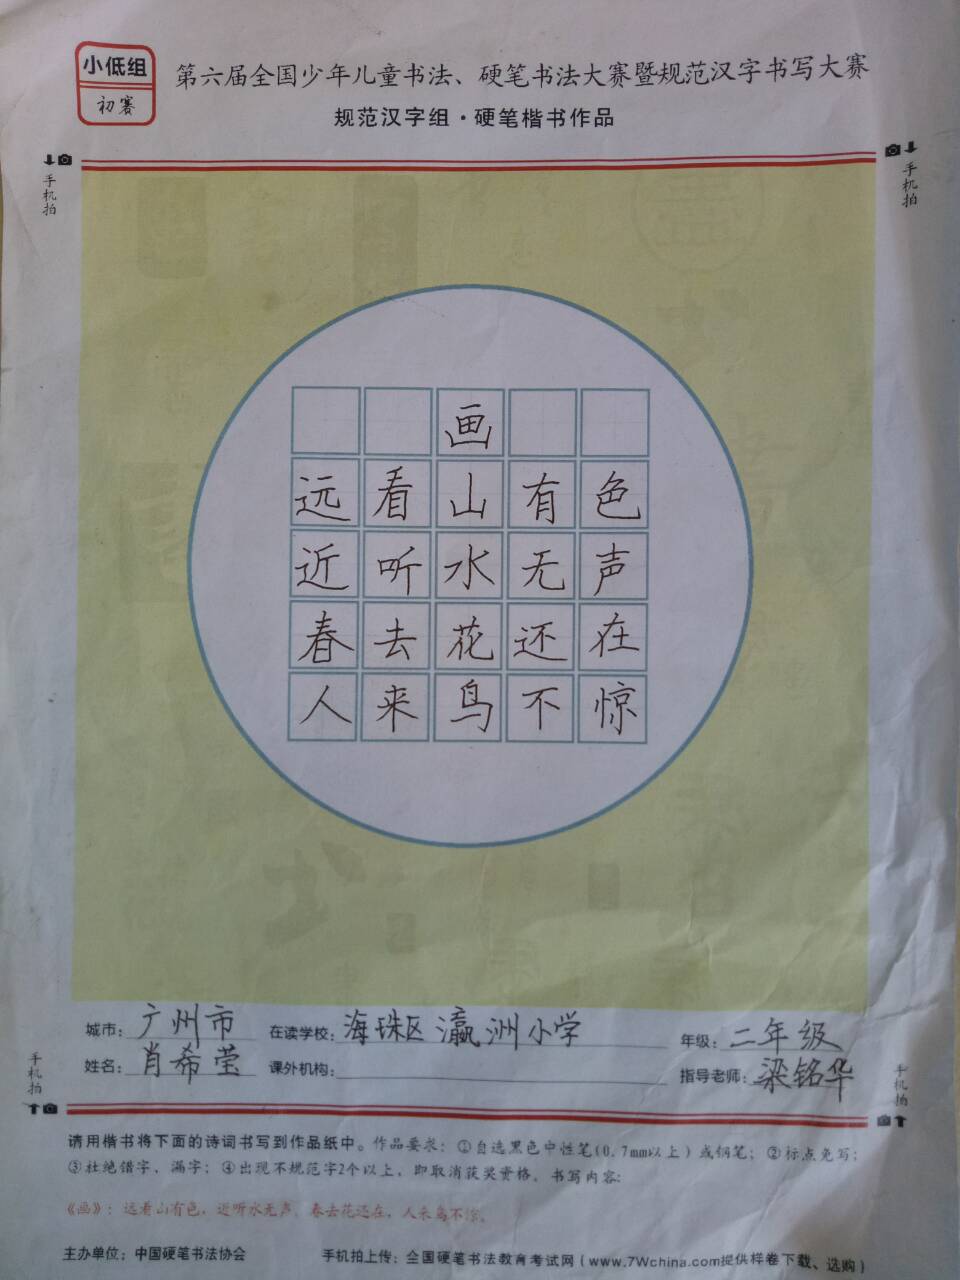 小低组
初赛
第六届全国少年儿童书法、硬笔书法大赛暨规范汉字书写大赛
规范汉字组·硬笔楷书作品
手机拍
手机拍
画
远看山有色
近听水无声
春去花还在
人来鸟不惊
城市：广州市 在读学校：海珠区瀛洲小学 年级：二年级
姓名：肖希莹 课外机构： 指导老师：梁铭华
手机拍
手机拍
请用楷书将下面的诗词书写到作品纸中。作品要求：①自选黑色中性笔(0.7mm以上)或钢笔；②标点免写；
③杜绝错字、漏字；④出现不规范字2个以上，即取消获奖资格。书写内容：
《画》：远看山有色，近听水无声。春去花还在，人来鸟不惊。
主办单位：中国硬笔书法协会 手机拍上传：全国硬笔书法教育考试网（www.7Wchina.com提供样卷下载、选购）